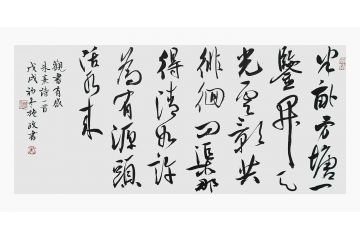 半畝方塘一
鑒開天
光雲影共
徘徊問渠那
得清如許
為有源頭
活水來
觀書有感
朱熹詩一首
戊戌初冬書